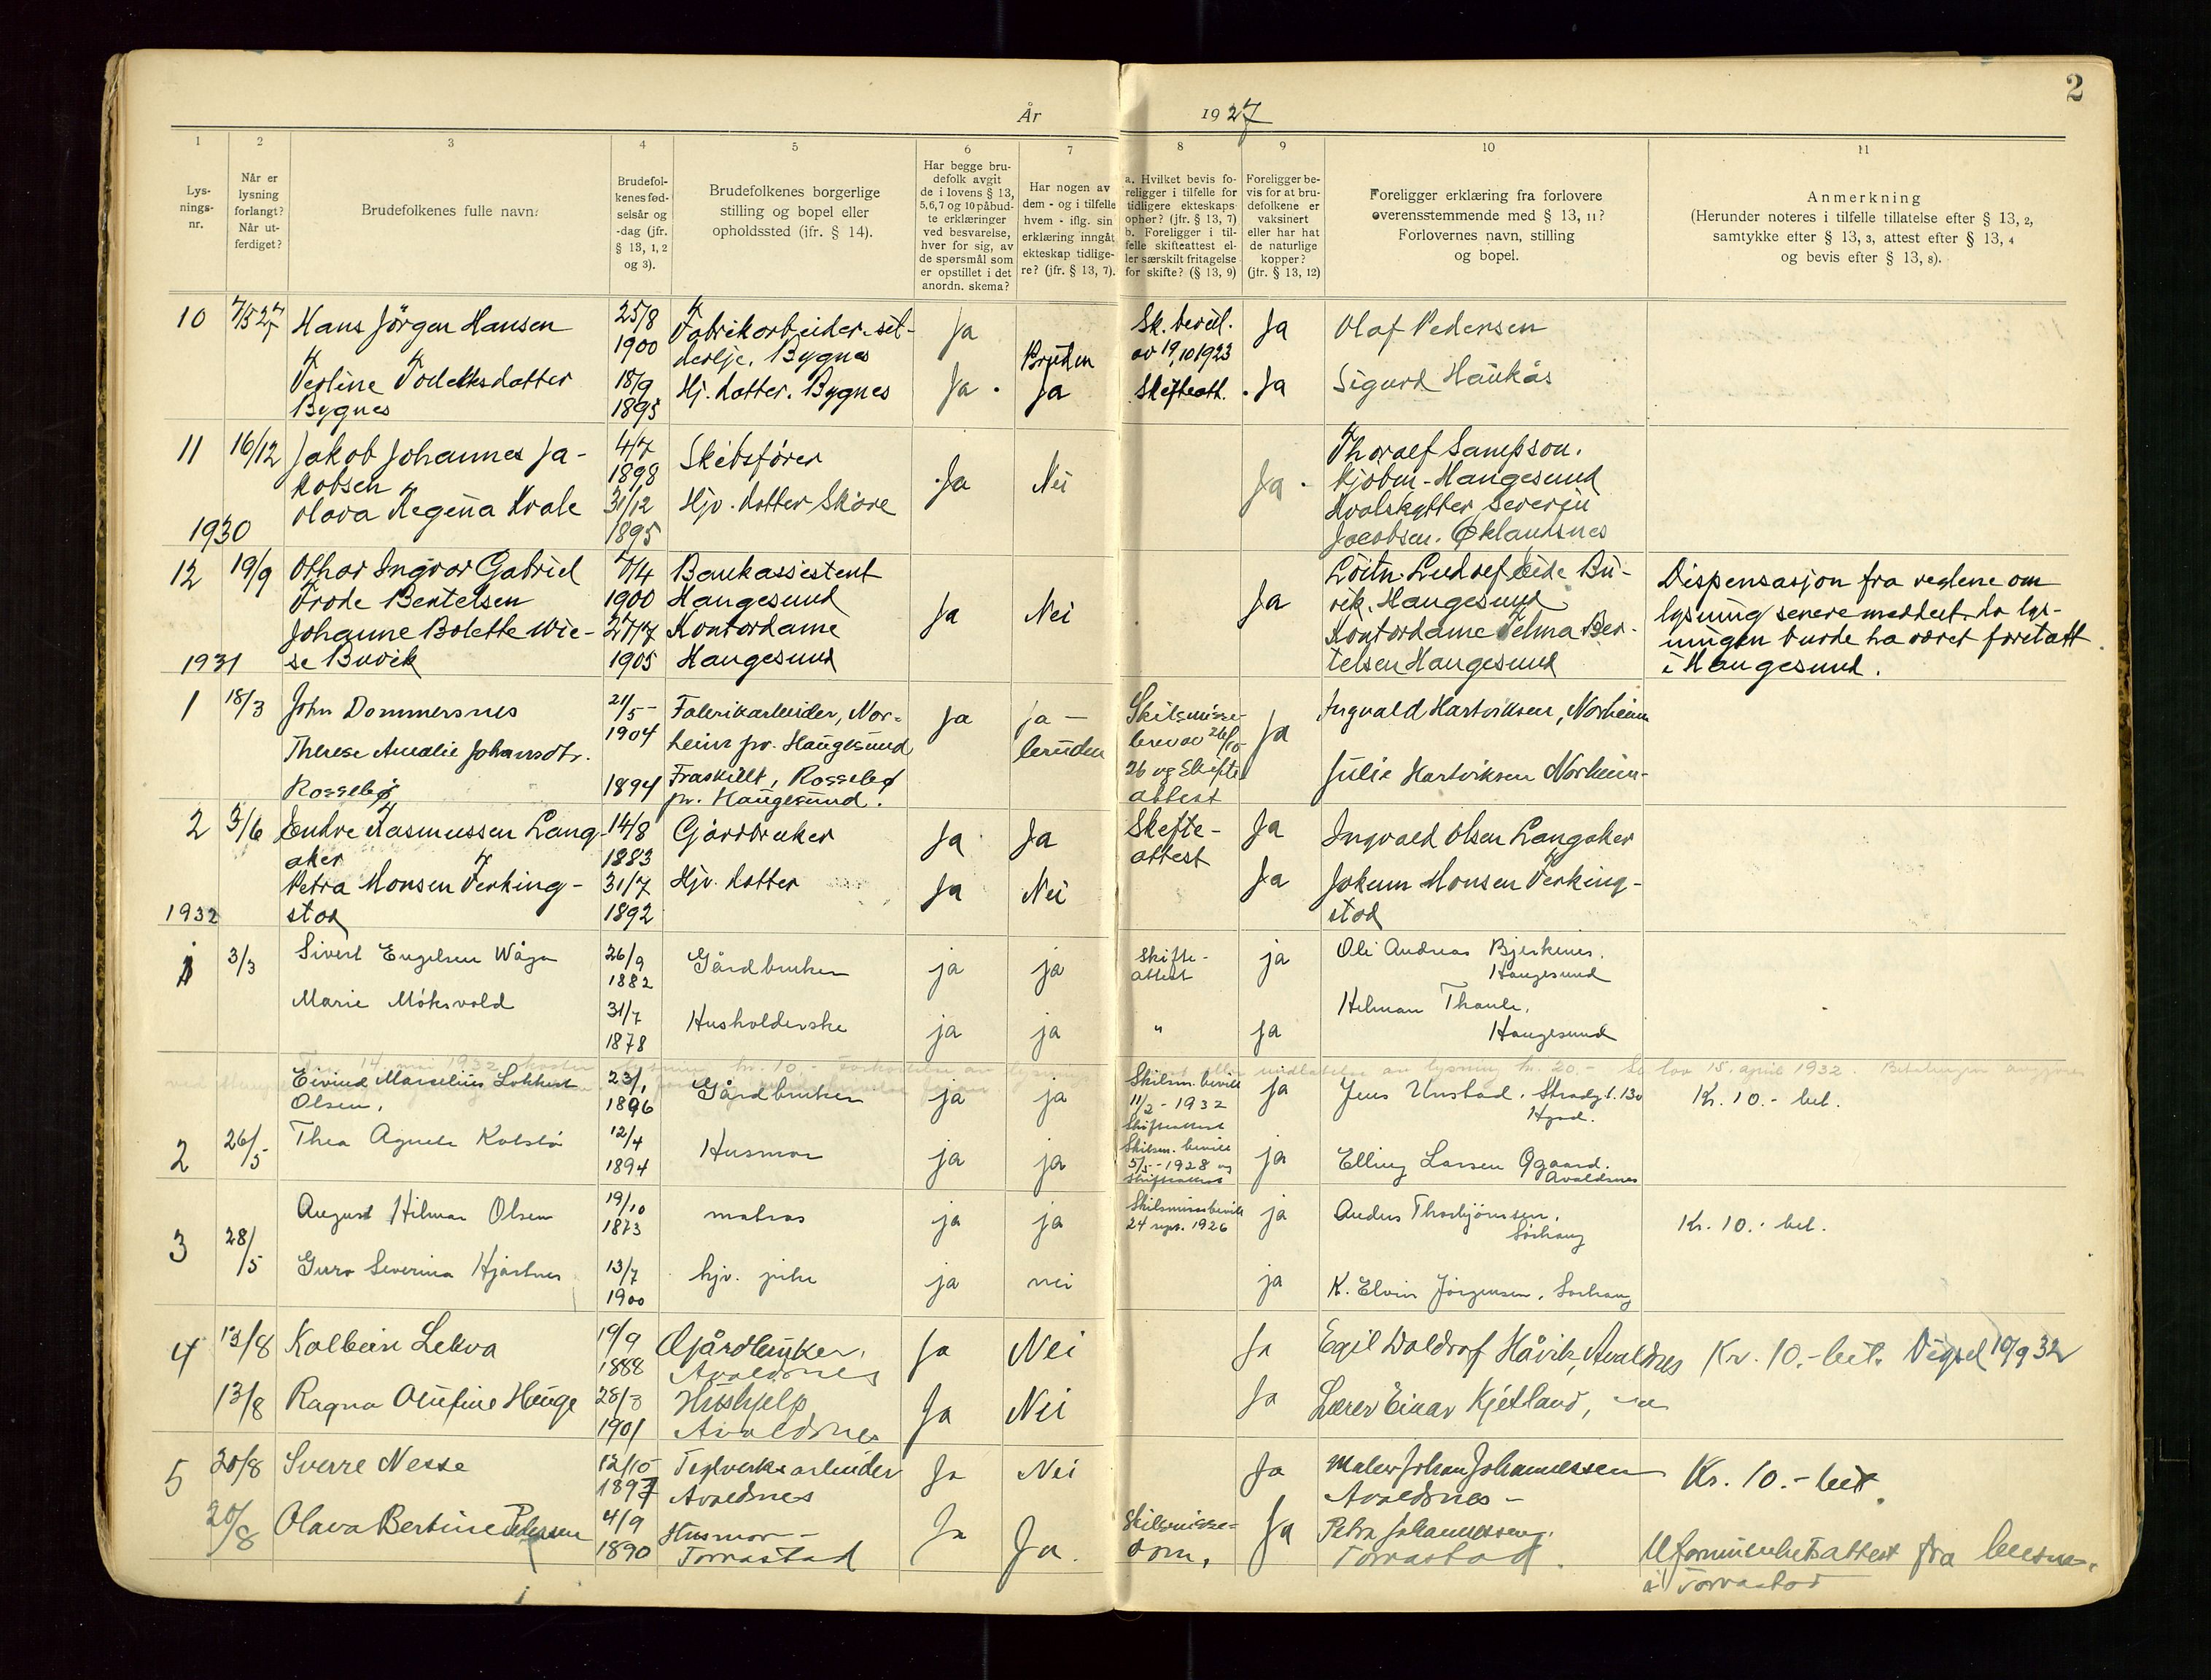 2
År 1927
1 2 3 4 5 6 7 8 9 10 11
Lys-
nings-
nr.
Når er
lysning
forlangt?
Når ut-
ferdiget?
Brudefolkenes fulle navn.
Brudefol-
kenes fød-
selsår og
-dag (jfr.
§ 13, 1, 2
og 3).
Brudefolkenes borgerlige
stilling og bopel eller
opholdssted (ifr. § 14).
Har begge bru-
defolk avgit
de i lovens § 13,
5,6,7 og 10 påbud-
te erklæringer
ved besvarelse,
hver for sig, av
de spørsmål som
er opstillet i det
anordn. skema?
Har nogen av
dem - og i tilfelle
hvem - iflg. sin
erklæring inngåt
ekteskap tidlige-
re? (jfr. § 13, 7).
a. Hvilket bevis fo-
religger i tilfelle for
tidligere ekteskaps
ophør? (jfr. § 13, 7)
b. Foreligger i til-
felle skifteattest el-
ler særskilt fritagelse
for skifte? (§ 13, 9)
Foreligger be-
vis for at bru-
defolkene er
vaksinert
eller har hat
de naturlige
kopper?
(jfr. § 13, 12)
Foreligger erklæring fra forlovere
overensstemmende med § 13, 11?
Forlovernes navn, stilling
og bopel.
Anmerkning
(Herunder noteres i tilfelle tillatelse efter § 13, 2,
samtykke efter § 13, 3, attest efter § 13, 4
og bevis efter § 13, 8).
10 7/5 27 Hans Jörgen Hansen 25/8 1900 Fabrikarbeider
Bygnes Ja Sk. bevil. av 19/10 1923 Ja Olaf Pedersen
Bygnes 18/9 1895 Hj. datter. Bygnes Ja Bruden Ja Skifteatt. Ja Sigurd Haukås
11 16/12 Jakob Johannes Ja-
kobsen 4/7 1898 Skibsfører Ja Nei Ja Thoralf Sampson.
Haugesund
Olava Regina Kvale 31/12 1895 Hjv. datter Skåre Hvalskytter Severin
Jacobsen. Øklandsnes
1930
12 19/9 Othar Ingvar Gabriel
Frode Bertelsen 7/4 1900 Bankassistent
Haugesund Ja Nei Ja
Haugesund
Johanne Bolette Wie-
se Buvik 27/7 1905 Kontordame
Haugesund Kontordame Telma Ber-
telsen Haugesund
Dispensasjon fra reglene om
lysning senere meddelt da lys-
ningen burde ha været foretatt
i Haugesund.
1931
1 18/3 John Dommersnes 21/5 1904 Fabrikarbeider, Nor-
heim pr. Haugesund Ja ja -
bruden Skilsmisse-
brev av 26/10
26 og Skifte
attest Ja Ingvald Hartviksen, Norheim
Therese Amalie Johansdtr.
Rossebø 1894 Fraskillt, Rossebø
pr. Haugesund. Julie Hartviksen Norheim-
2 3/6 Endre Rasmussen Lang-
aker 14/8 1883 Gårdbruker Ja Ja Skifte-
attest Ja Ingvald Olsen Langaker
Petra Monsen Ferking-
stad 31/7 1892 Hjv. datter Ja Nei Ja Jokum Monsen Ferking-
stad
1932
1 3/3 Sivert Engelsen Våga 26/9 1882 Gårdbruker ja ja Skifte-
attest ja Ole Andreas Bjerknes.
Haugesund
Marie Möksvold 31/7 1878 Husholderske ja ja " ja Hilman
Haugesund
2 26/5 Eivind Marselius
Olsen. 23/1 1896 Gårdbruker ja ja Skilsm. bevill
11/2 - 1932
Skifteattest ja Jens
Kr. 10.- bet.
Thea Agnete Kolstö 12/4 1894 Husmor ja ja Skilsm. bevill
5/5 - 1928 og
skifteattest ja Elling Larsen
Avaldsnes
3 28/5 August Hilmar Olsen 19/10 1873 matros ja ja Skilsmissebevill
24 sept. 1926 ja Anders Thorbjörnsen,
Sörhaug Kr. 10.- bet.
Guro Severina 13/7 1900 hjv. pike ja nei ja K. Elvin Jörgensen, Sörhaug
4 13/8 Kolbein Lekva 19/9 1888 Gårdbruker,
Avaldsnes Ja Nei Ja Egil Waldraf Håvik, Avaldsnes Kr. 10.- bet. Vigsel 10/9 32
13/8 Ragna Olufine Hauge 28/3 1901 Hushjelp
Avaldsnes Ja Nei Ja Lærer Einar Kjetland,
5 20/8 Sverre Nesse 12/10 1897 Teglverksarbeider
Avaldsnes Ja Nei Ja Maler Johan Johannessen
Avaldsnes - Kr. 10.- bet.
20/8 Olava Bertine Pedersen 4/9 1890 Husmor -
Torvastad Ja Ja. Skilsmisse-
dom. Ja Petra Johannessen,
Torvastad. fra
i Torvastad